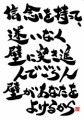 信念を持て
迷いなく
壁に突き進
んでいくん
壁があなたを
よけるから